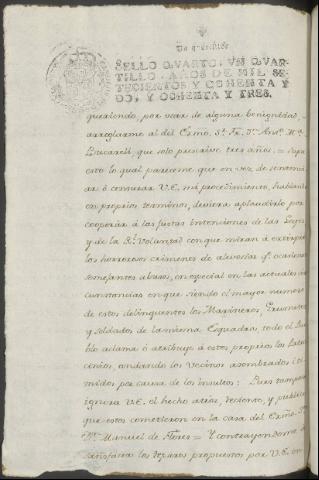 Un quartillo
SELLO QVARTO, VN QVAR-
TILLO, AÑOS DE MIL SE-
TECIENTOS Y OCHENTA Y
DOS, Y OCHENTA Y TRES.
queriendo, por usar de alguna benignidad,
arreglarme al del Exmo. Sr. Fr. Dn. Antº. Mª.
Bucareli, que solo prescrive tres años. = Supu
esto lo qual pareceme que en vez de
ar ó censurar V.E. mi procedimiento, hablando
en proprios terminos, deviera aplaudirlo por
cooperar á las justas intenciones de las Leyes
y de la Rl. Voluntad con que miran á extirpar
los horrorosos crimenes de alevosias qe. ocacionan
semejantes abusos, en especial en las actuales cir
cunstancias en que siendo el mayor numero
de estos delinquentes los Marineros,
y Soldados de la misma Esquadra, todo el Pue
blo aclama ó atribuye á estos proprios los
, andando los Vecinos asombrados i ti
midos por causa de los insultos: Pues tampoco
ignora V.E. el hecho atros, reciente, y publico
que estos cometieron en la casa del Exmo. Sr.
Dn. Manuel de Flores = Y contrayendome á
satisfacer los reparos propuestos por V.E. en